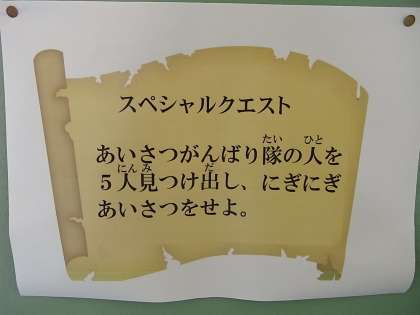 スペシャルクエスト
あいさつがんばり隊の人を
5人見つけ出し、にぎにぎ
あいさつをせよ。